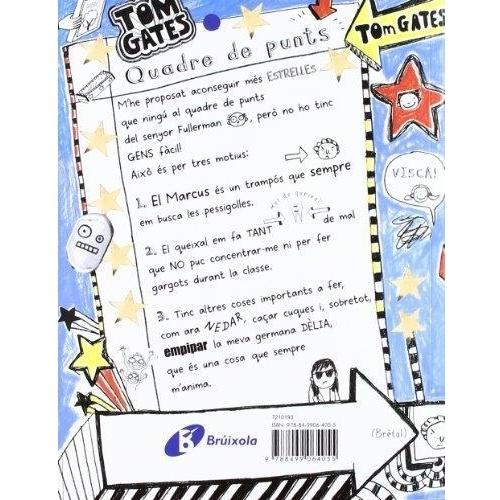 TOM
GATES
TOM GATES
Quadre de punts
M'he proposat aconseguir més ESTRELLES
que ningú al quadre de punts
del senyor Fullerman, però no ho tinc
GENS fàcil!
Això és per tres motius:
1. El Marcus és un trampós que sempre
em busca les pessigolles.
VISCA!
2. El queixal em fa TANT de mal
que NO puc concentrar-me ni per fer
gargots durant la classe.
3. Tinc altres coses importants a fer,
com ara NEDAR, caçar cuques i, sobretot,
empipar la meva germana DÈLIA,
que és una cosa que sempre
m'anima.
7210193
ISBN: 978-84-9906-405-5
B
Brúixola
9 788499 064055
(Brètol)